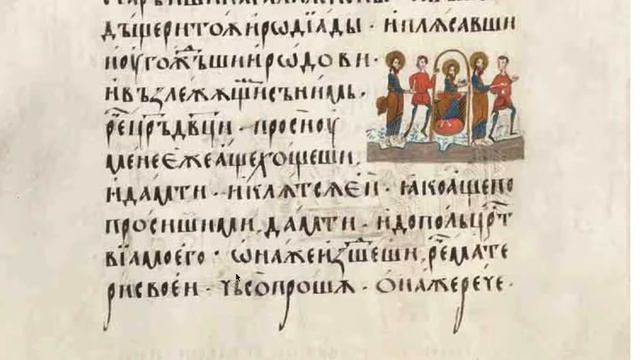 дъщеритожиродїады · иплѧсавши
иоугождьшиирѡдови ·
ивъзлежѧщи͡исънимь.
реⷱ҇црь҃двц҃и · просиоу
менеежеащехощеши,
идамти · иклѧтсѧеи · ꙗкоащепо
просишими, дамти · идополъцрⷭ҇т
вїамоего · ѡнажеизшеⷣши, реⷱ҇мате
рисвоеи · чьсопрошѫ · онажерече ·